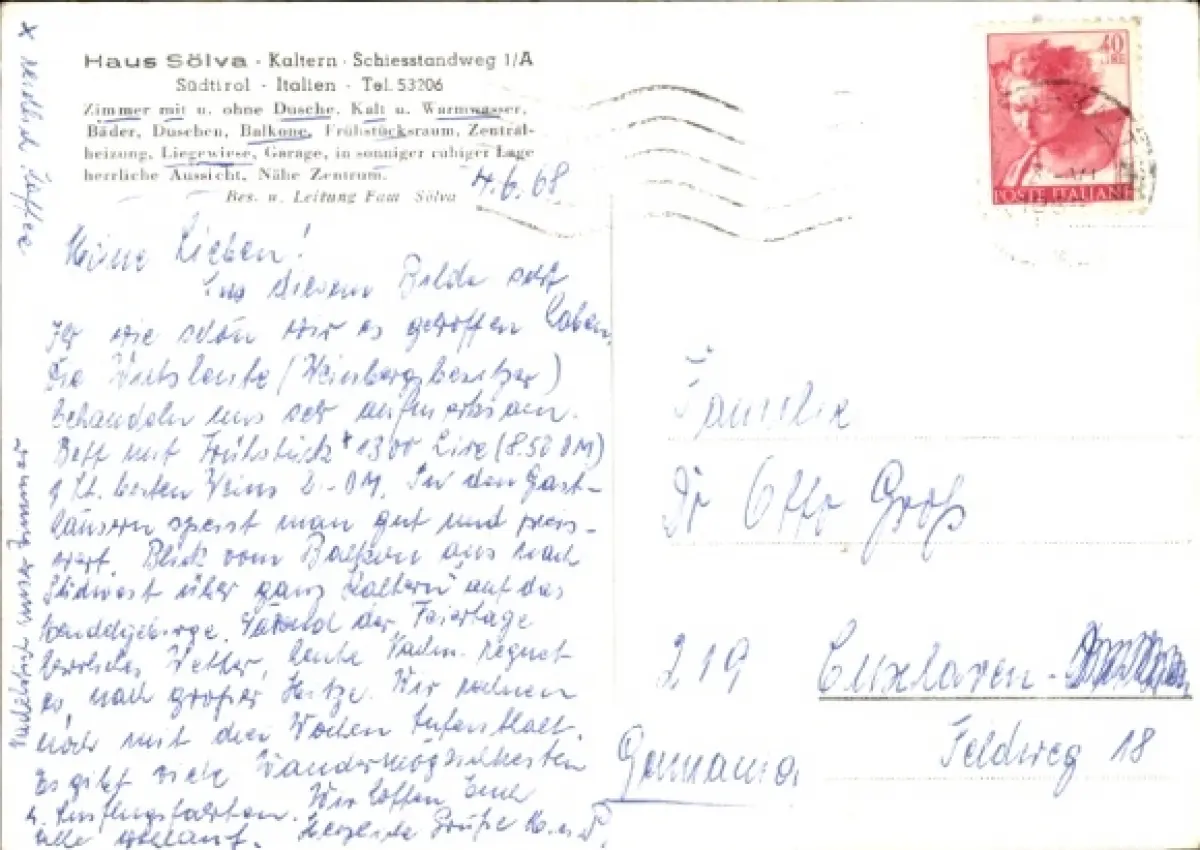 Haus Sölva · Kaltern · Schiesstandweg 1/A
Südtirol · Italien · Tel. 53206
Zimmer mit u. ohne Dusche, Kalt u. Warmwasser,
Bäder, Duschen, Balkone, Frühstücksraum, Zentral-
heizung, Liegewiese, Garage, in sonniger ruhiger Lage
herrliche Aussicht, Nähe Zentrum.
Bes. u. Leitung Fam Sölva
4.6.68
Meine Lieben!
Aus diesem Bilde seht
Ihr wie schön wir es getroffen haben.
Die Wirtsleute (Weinbergbesitzer)
behandeln uns sehr aufmerksam.
Bett mit Frühstück* 1300 Lire (8.50 DM)
1 Lt. besten Weins 2.- DM. In den Gast-
häusern speist man gut und preis-
wert. Blick vom Balkon aus nach
Südwest über ganz Kaltern auf das
Mendelgebirge. Während der Feiertage
herrliches Wetter, heute Nachm. regnet
es, nach großer Hitze. Wir rechnen
noch mit drei Wochen Aufenthalt.
Es gibt viele Wandermöglichkeiten
u. Ausflugsfahrten. Wir hoffen Euch
alle wohlauf. Herzliche Grüße
* reichlich Kaffee
unser Zimmer
40
LIRE
POSTE ITALIANE
Familie
Dr Otto Groß
219 Cuxhaven-
Feldweg 18
Germania